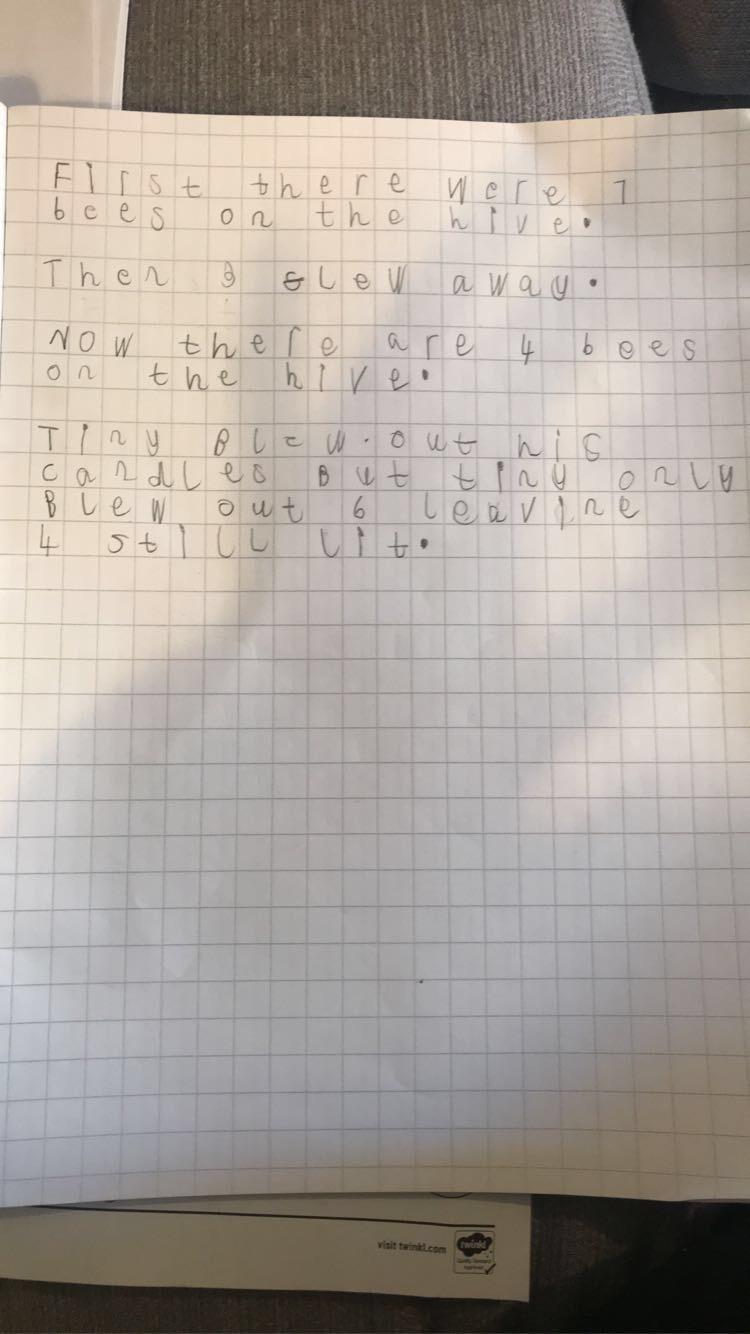 First there were 7
bees on the hive.
Then 3 flew away.
Now there are 4 bees
on the hive.
Tiny Blew. out his
candles But tiny only
Blew out 6 leavine
4 still lit.
visit twinkl.com
twinkl
Quality Standard
Approved